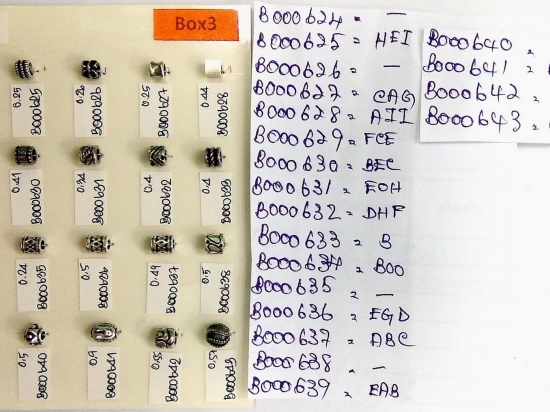 Box3
0.25 B000625
0.26 B000626
0.25 B000627
0.44 B000628
0.41 B000630
0.34 B000631
0.4 B000632
0.4 B000633
0.24 B000635
0.5 B000636
0.49 B000637
0.5 B000638
0.5 B000640
0.9 B000641
0.55 B000642
0.57 B000643
B000624 = —
B000625 = HEI
B000626 = —
B000627 = CAG
B000628 = AII
B000629 = FCE
B000630 = BEC
B000631 = EOH
B000632 = DHF
B000633 = B
B000634 = BOO
B000635 = —
B000636 = EGD
B000637 = ABC
B000638 = —
B000639 = EAB
B000640 =
B000641 =
B000642 =
B000643 =